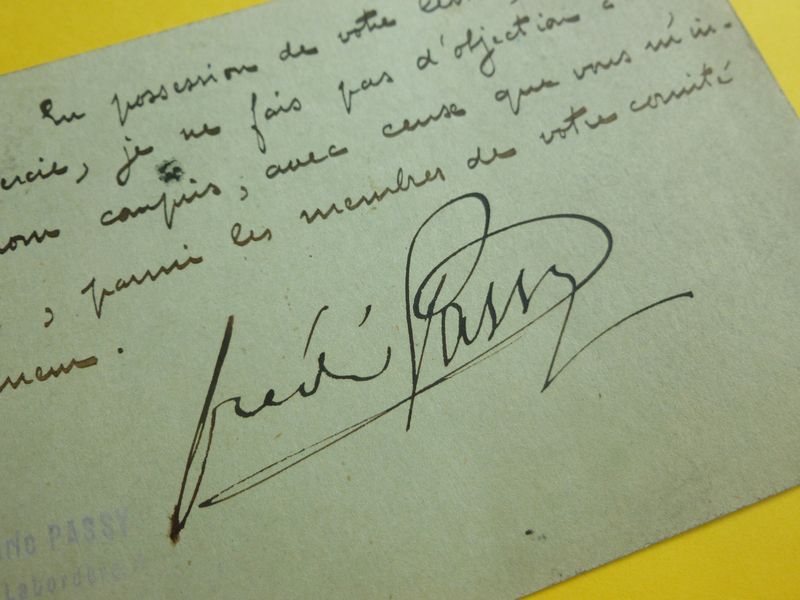 En possession de votre
je ne fais pas d'objection à
nom compris, avec ceux que vous m'in-
, parmi les membres de votre comité
neur.
frédéric Passy
ric PASSY
Labordère